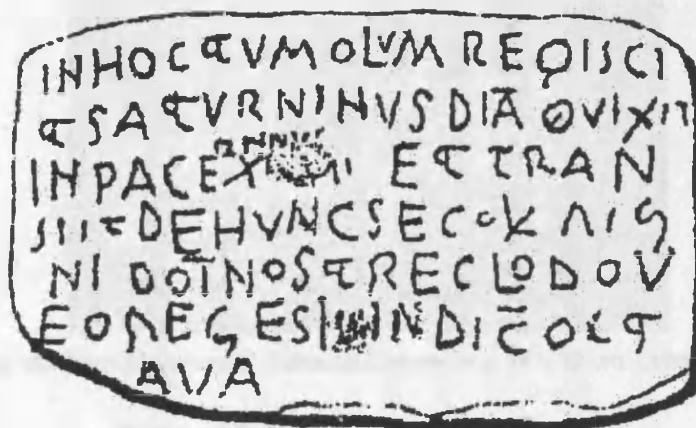 INHOCTVMOLVM REQISCI
TSATVRNINVSDIĀ QVIXIT
INPACE ET TRAN
SIITDEHVNCSECOK AIS
NI DOĪNOSTRECLODOV
EOREGES INDIC̄OCT
AVA